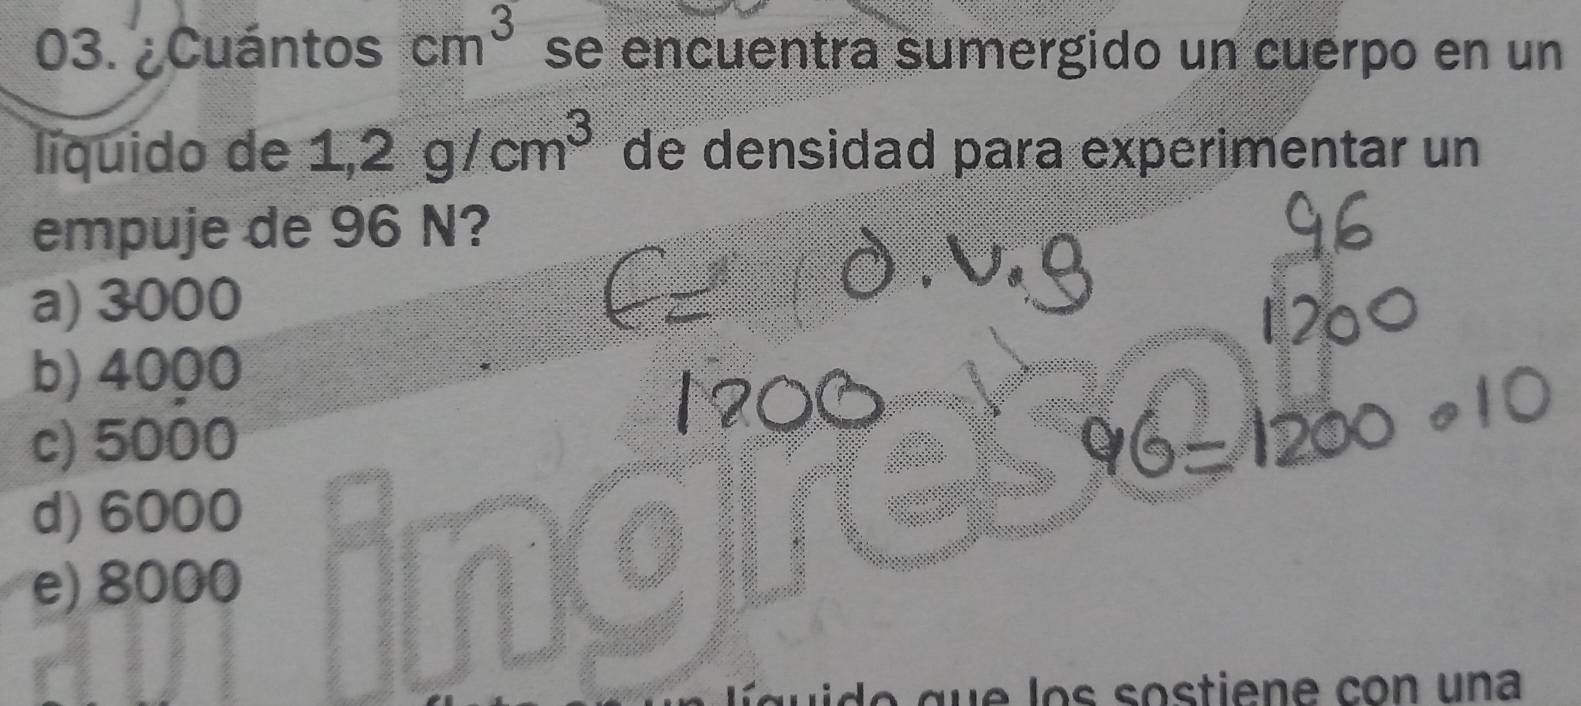 03. ¿Cuántos cm³ se encuentra sumergido un cuerpo en un
líquido de 1,2 g/cm³ de densidad para experimentar un
empuje de 96 N?
a) 3000
b) 4000
c) 5000
d) 6000
e) 8000
E= d.v.g
1200
96
1200
96=1200 •10
ingreso
un líquido que los sostiene con una